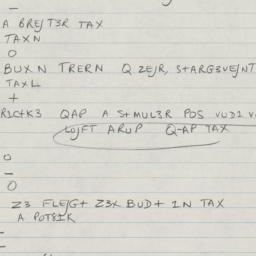 -
A BREJT3R TAX
TAXN
O
BUXN TRERN Q ZEJR, S+ARG3VEJNT
TAXL
+
R1C+K3 QAP A S+MUL3R POS VUD1 V
LOJFT ARUP Q-AP TAX
O
-
O
Z3 FLEJG+ Z3X BUD+ IN TAX
A POT8IK
-